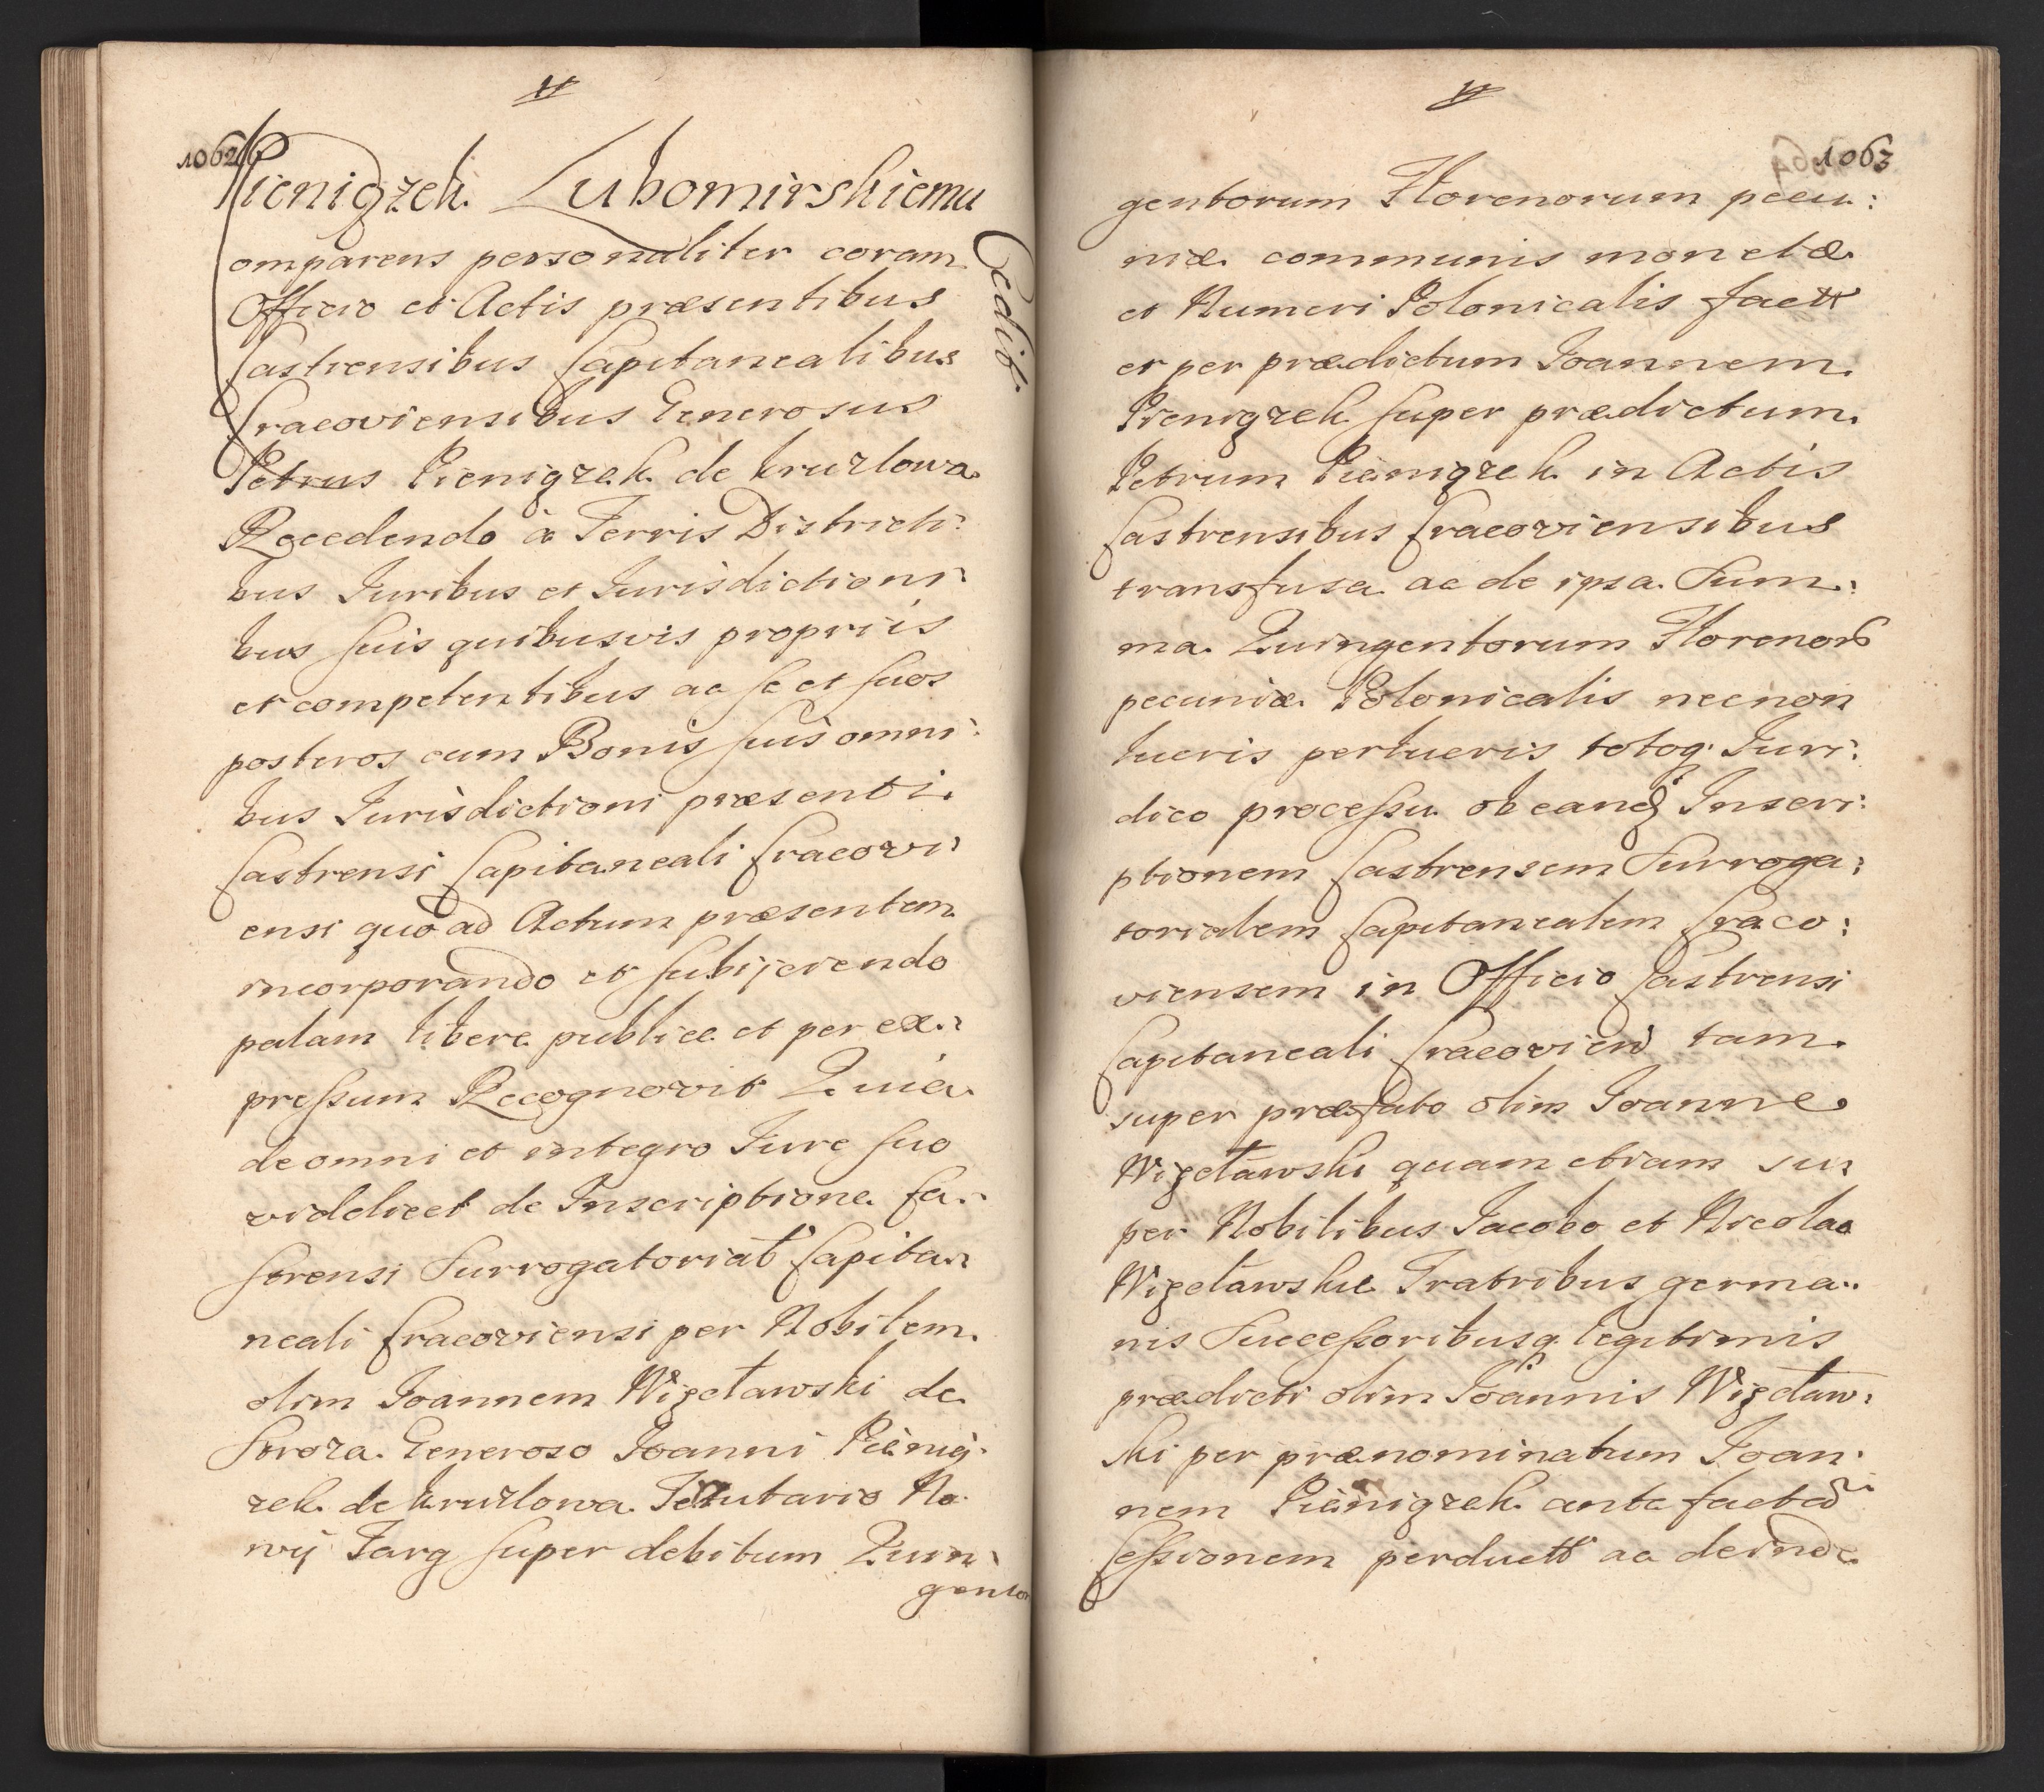 #
1062
Pieniązek Lubomirskiemu
Cedit
omparens personaliter coram
Officio et Actis præsentibus
Castrensibus Capitanealibus
Cracoviensibus Generosus
Petrus Pieniązek de Kruzlowa
Recedendo à Terris Districti:
bus Juribus et Jurisdictioni:
bus suis quibusvis proprijs
et competentibus ac se et suos
posteros cum Bonis suis omni:
bus Jurisdictioni præsenti
Castrensi Capitaneali Cracovi:
ensi quo ad Actum præsentem
incorporando et subijciendo
palam libere publice et per ex:
pressum Recognovit Quia
de omni et integro Jure suo
videlicet de Inscriptione Ca:
strensi Surrogatoriat Capita:
neali Cracoviensi per Nobilem
olim Joannem Wizeławski de
Skroza Generoso Joanni Pienią:
zek de Kruzlowa Tenutario No:
wij Targ super debitum Quin:
gento
#
1063
gentorum Florenorum pecu:
niæ communis monetæ
et Numeri Polonicalis factt
et per prædictum Joannem
Pieniązek super prædictum
Petrum Pieniązek in Actis
Castrensibus Cracoviensibus
transfusa ac de ipsa Sum:
ma Quingentorum Florenor
pecuniæ Polonicalis necnon
lucris perlucris totoq Juri:
dico processu ob eandq Inscri:
ptionem Castrensem Surroga:
torialem Capitanealem Craco:
viensem in Officio Castrensi
Capitaneali Cracovien tam
super præfato olim Joanne
Wizeławski quam etiam su:
per Nobilibus Jacobo et Nicolao
Wizeławskie Fratribus germa:
nis Successoribusq legitimis
prædicti olim Joannis Wizeław:
ski per prænominatum Joan:
nem Pieniązek ante factã
Cessionem perductt ac deinde